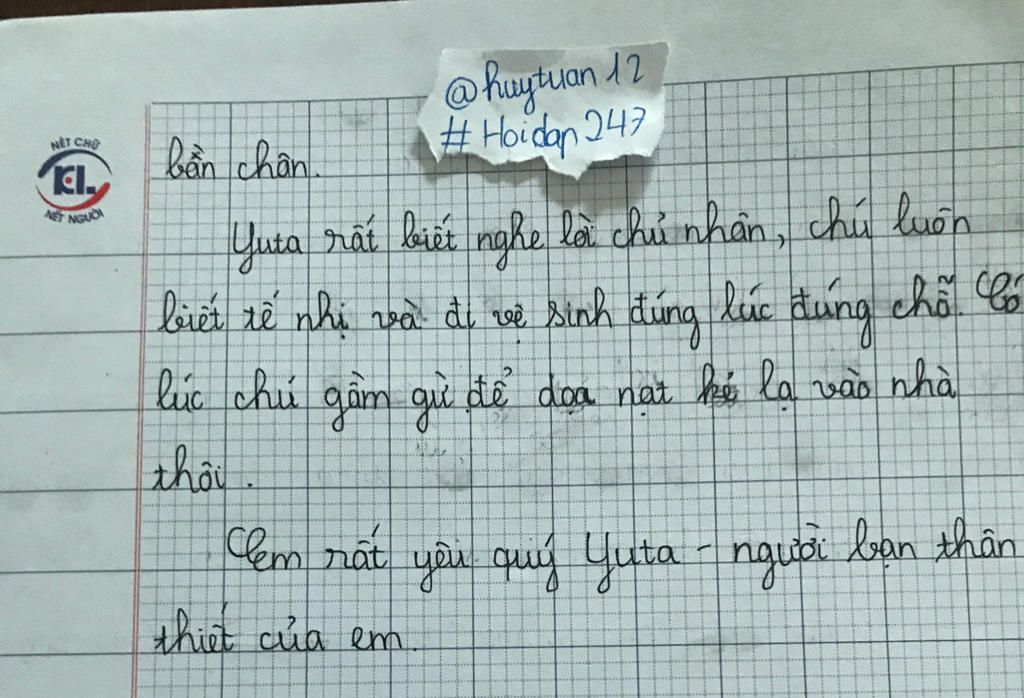 @huytuan12
#Hoidap247
NÉT CHỮ
KL
NẾT NGƯỜI
bần chân.
Yuta rất biết nghe lời chủ nhân, chú luôn
biết tế nhị và đi vệ sinh đúng lúc đúng chỗ. Có
lúc chú gầm gừ để dọa nạt kẻ lạ vào nhà
thôi.
Em rất yêu quý Yuta - người bạn thân
thiết của em.